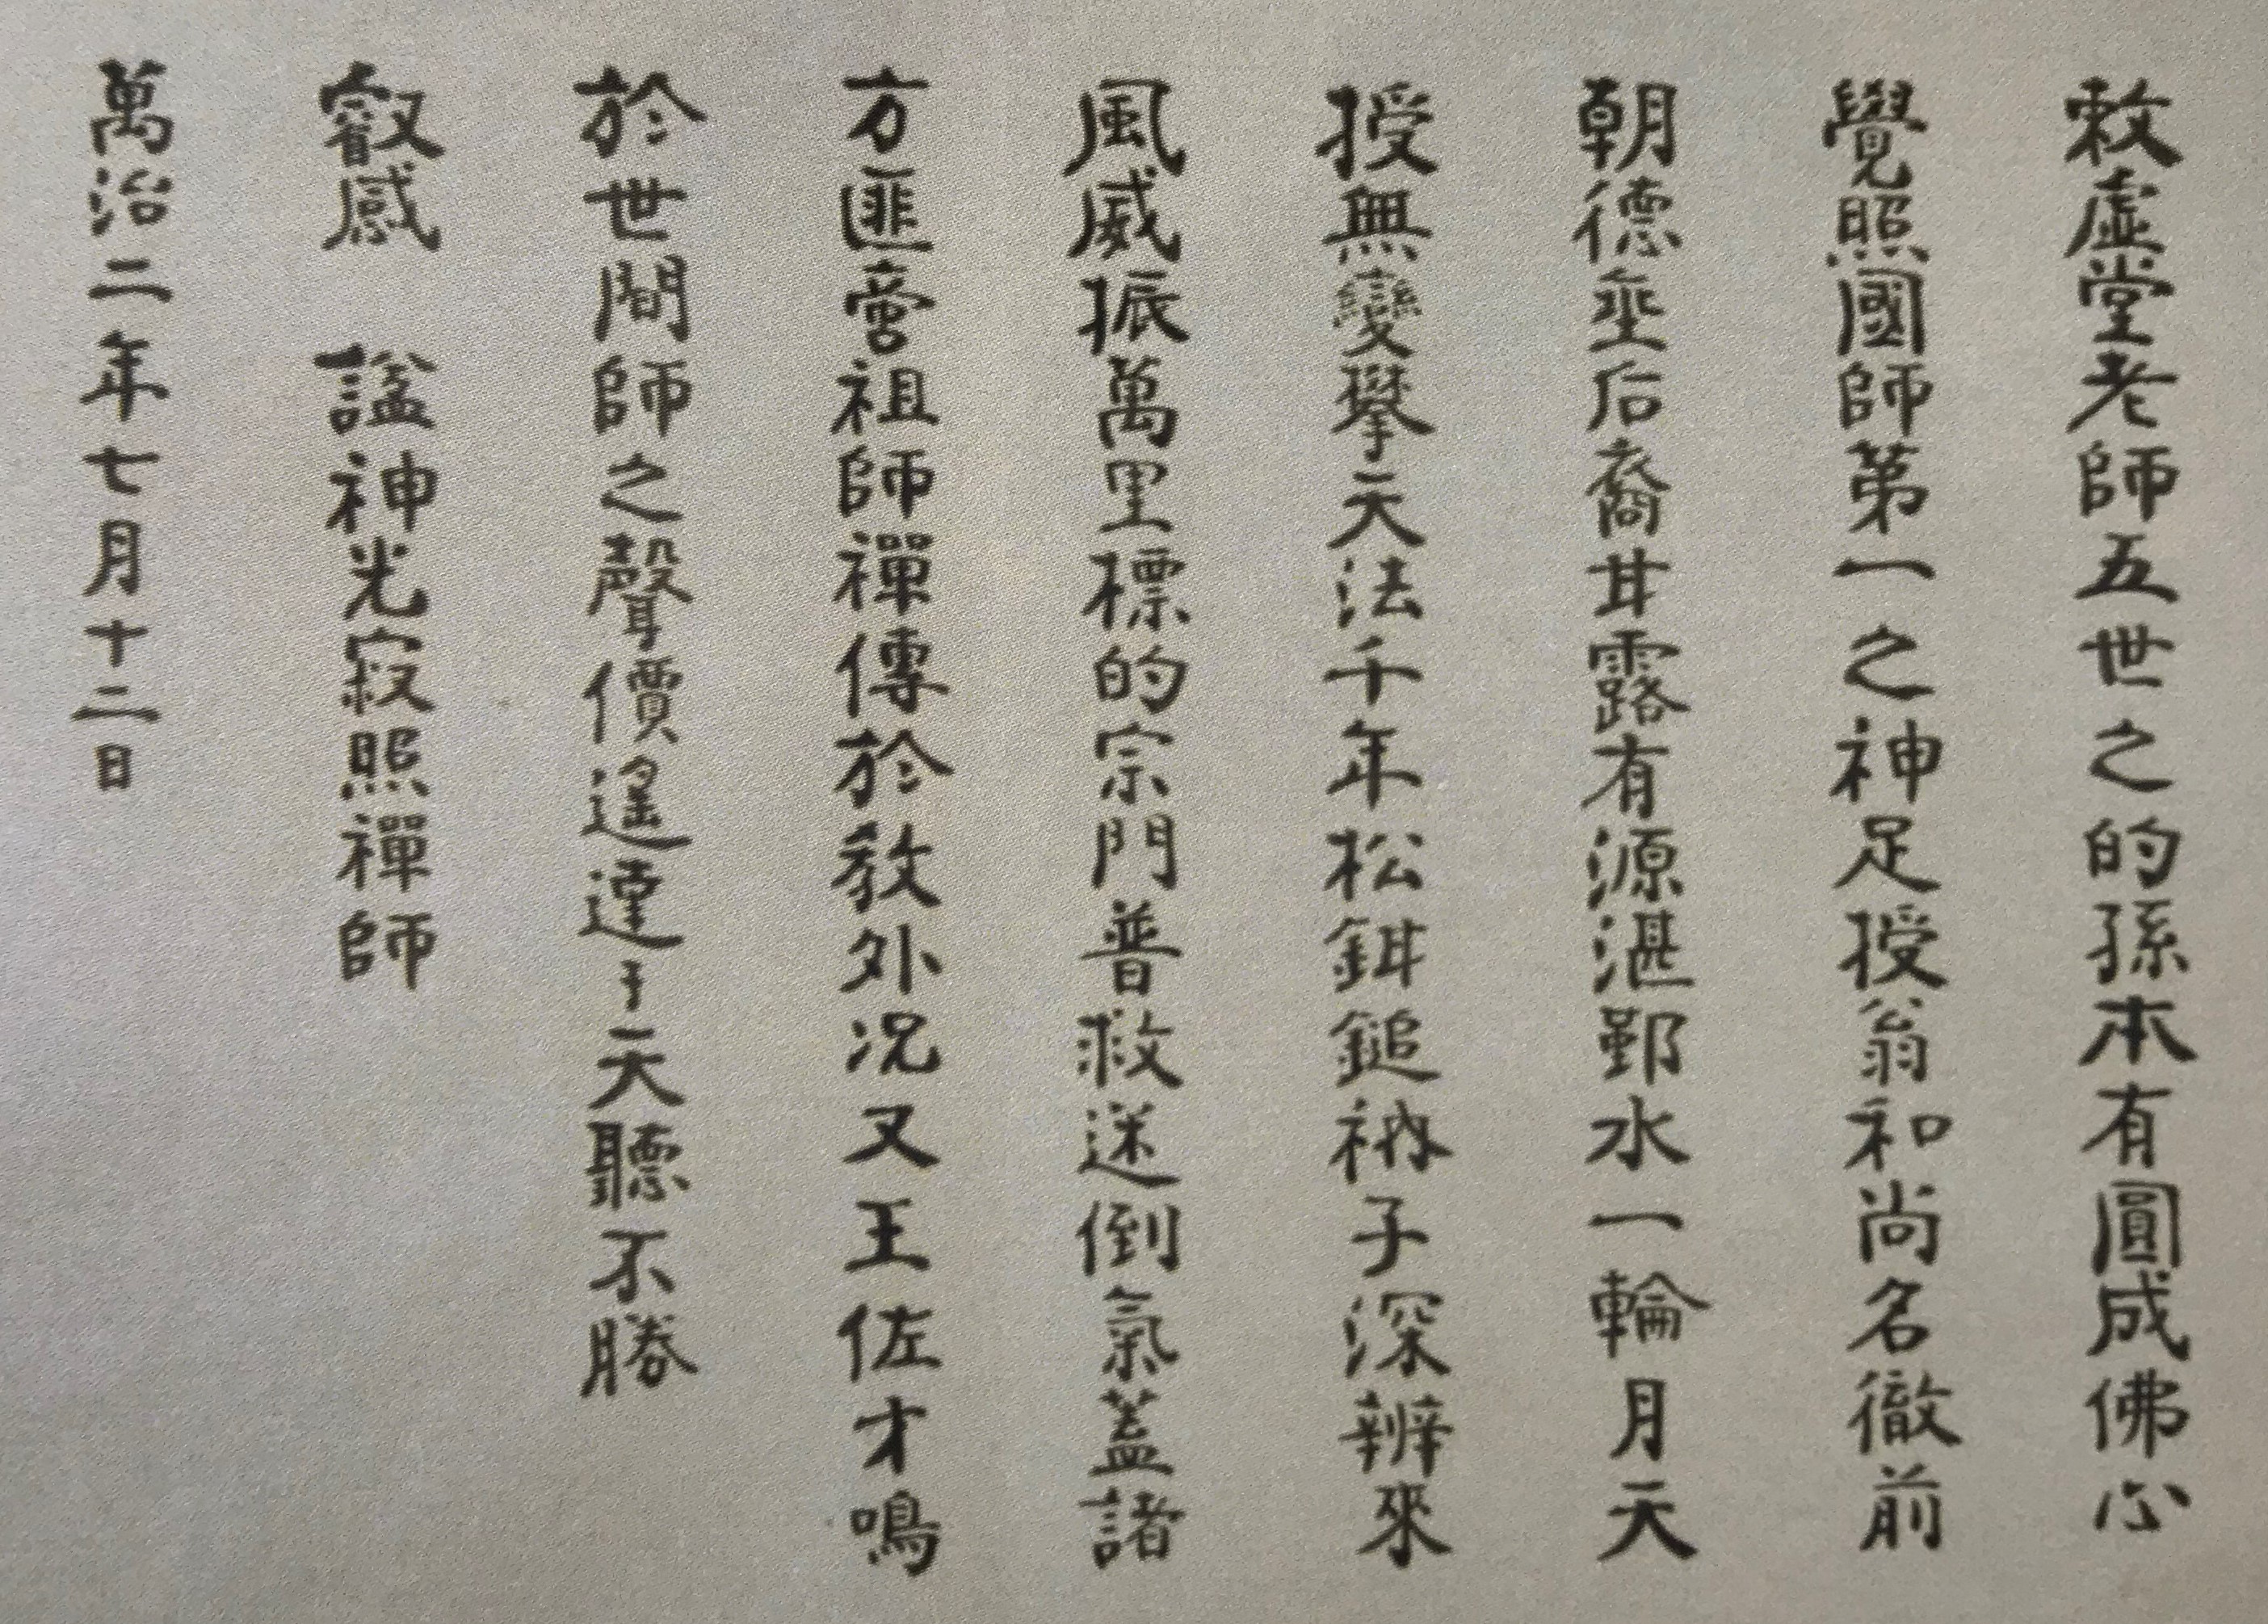 敕虛堂老師五世之的孫本有圓成佛心
覺照國師第一之神足授翁和尚名徹前
朝德垂后裔甘露有源湛鄞水一輪月天
授無變擧天法千年松鉗鎚衲子深辨來
風威振萬里標的宗門普救迷倒氣蓋諸
方匪啻祖師禪傳於教外況又王佐才鳴
於世間師之聲價遙達于天聽不勝
叡感 謚神光寂照禪師
萬治二年七月十二日